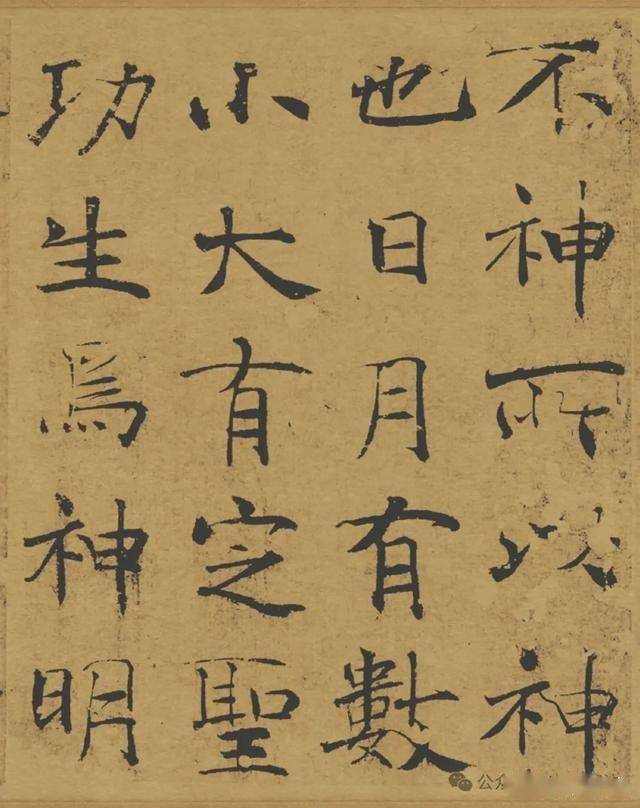 不神所以神
也日月有數
小大有定聖
功生焉神明
公众